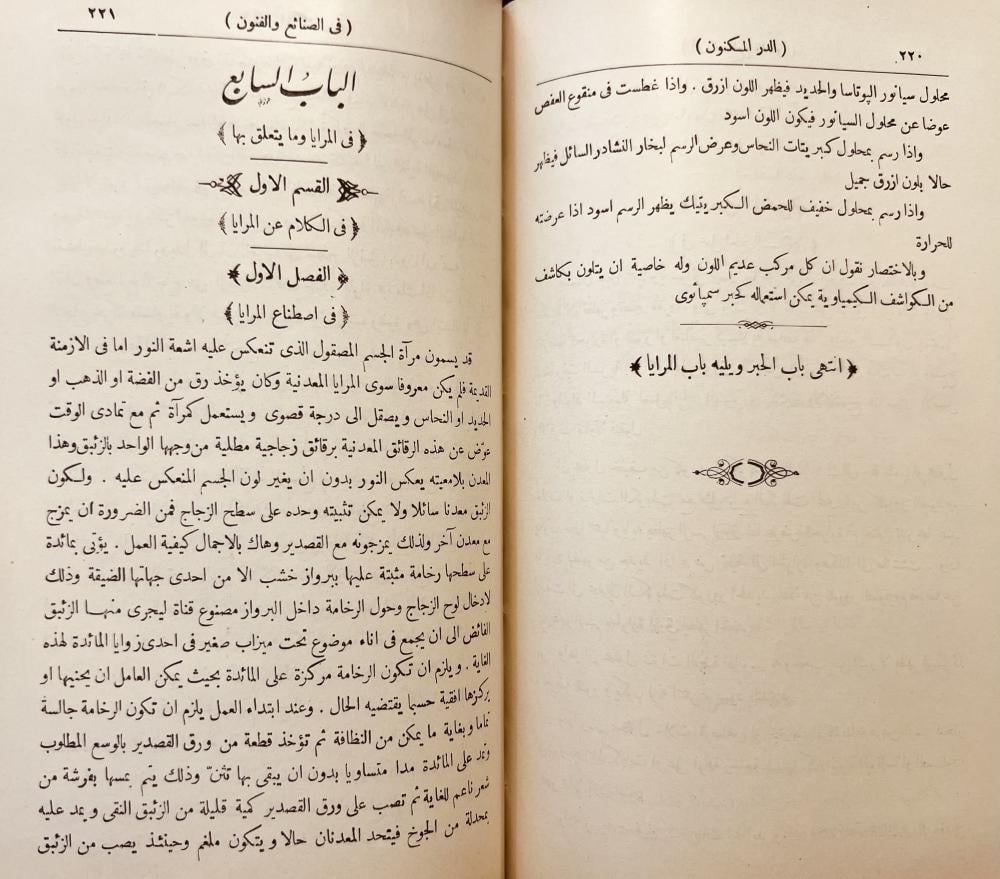 ٢٢٠
( الدر المكنون )
محلول سيانور الپوتاسا والحديد فيظهر اللون ازرق . واذا غطست فى منقوع العفص
عوضا عن محلول السيانور فيكون اللون اسود
واذا رسم بمحلول كبريتات النحاس وعرض الرسم لبخار النشادر السائل فيظهر
حالا بلون ازرق جميل
واذا رسم بمحلول خفيف للحمض الكبريتيك يظهر الرسم اسود اذا عرضته
للحرارة
وبالاختصار نقول ان كل مركب عديم اللون وله خاصية ان يتلون بكاشف
من الكواشف الكيمياوية يمكن استعماله كحبر سمپاثوى
﴿ انتهى باب الحبر ويليه باب المرايا ﴾
( فى الصنائع والفنون )
٢٢١
الباب السابع
﴿ فى المرايا وما يتعلق بها ﴾
القسم الاول
﴿ فى الكلام عن المرايا ﴾
﴿ الفصل الاول ﴾
﴿ فى اصطناع المرايا ﴾
قد يسمون مرآة الجسم المصقول الذى تنعكس عليه اشعة النور اما فى الازمنة
القديمة فلم يكن معروفا سوى المرايا المعدنية وكان يؤخذ رق من الفضة او الذهب او
الحديد او النحاس ويصقل الى درجة قصوى ويستعمل كمرآة ثم مع تمادى الوقت
عوّض عن هذه الرقائق المعدنية برقائق زجاجية مطلية من وجهها الواحد بالزئبق وهذا
المعدن بلامعيته يعكس النور بدون ان يغير لون الجسم المنعكس عليه . ولكون
الزئبق معدنا سائلا ولا يمكن تثبيته وحده على سطح الزجاج فمن الضرورة ان يمزج
مع معدن آخر ولذلك يمزجونه مع القصدير وهاك بالاجمال كيفية العمل . يؤتى بمائدة
على سطحها رخامة مثبتة عليها ببرواز خشب الا من احدى جهاتها الضيقة وذلك
لادخال لوح الزجاج وحول الرخامة داخل البرواز مصنوع قناة ليجرى منها الزئبق
الفائض الى ان يجمع فى اناء موضوع تحت ميزاب صغير فى احدى زوايا المائدة لهذه
الغاية . ويلزم ان تكون الرخامة مركزة على المائدة بحيث يمكن العامل ان يحنيها او
يركزها افقية حسبما يقتضيه الحال . وعند ابتداء العمل يلزم ان تكون الرخامة جالسة
تماما وبغاية ما يمكن من النظافة ثم تؤخذ قطعة من ورق القصدير بالوسع المطلوب
وتمد على المائدة مدا متساويا بدون ان يبقى بها تثنّ وذلك يتم بمسها بفرشة من
شعر ناعم للغاية ثم تصب على ورق القصدير كمية قليلة من الزئبق النقى ويمد عليه
بمحدلة من الجوخ فيتحد المعدنان حالا ويتكون ملغم وحينئذ يصب من الزئبق